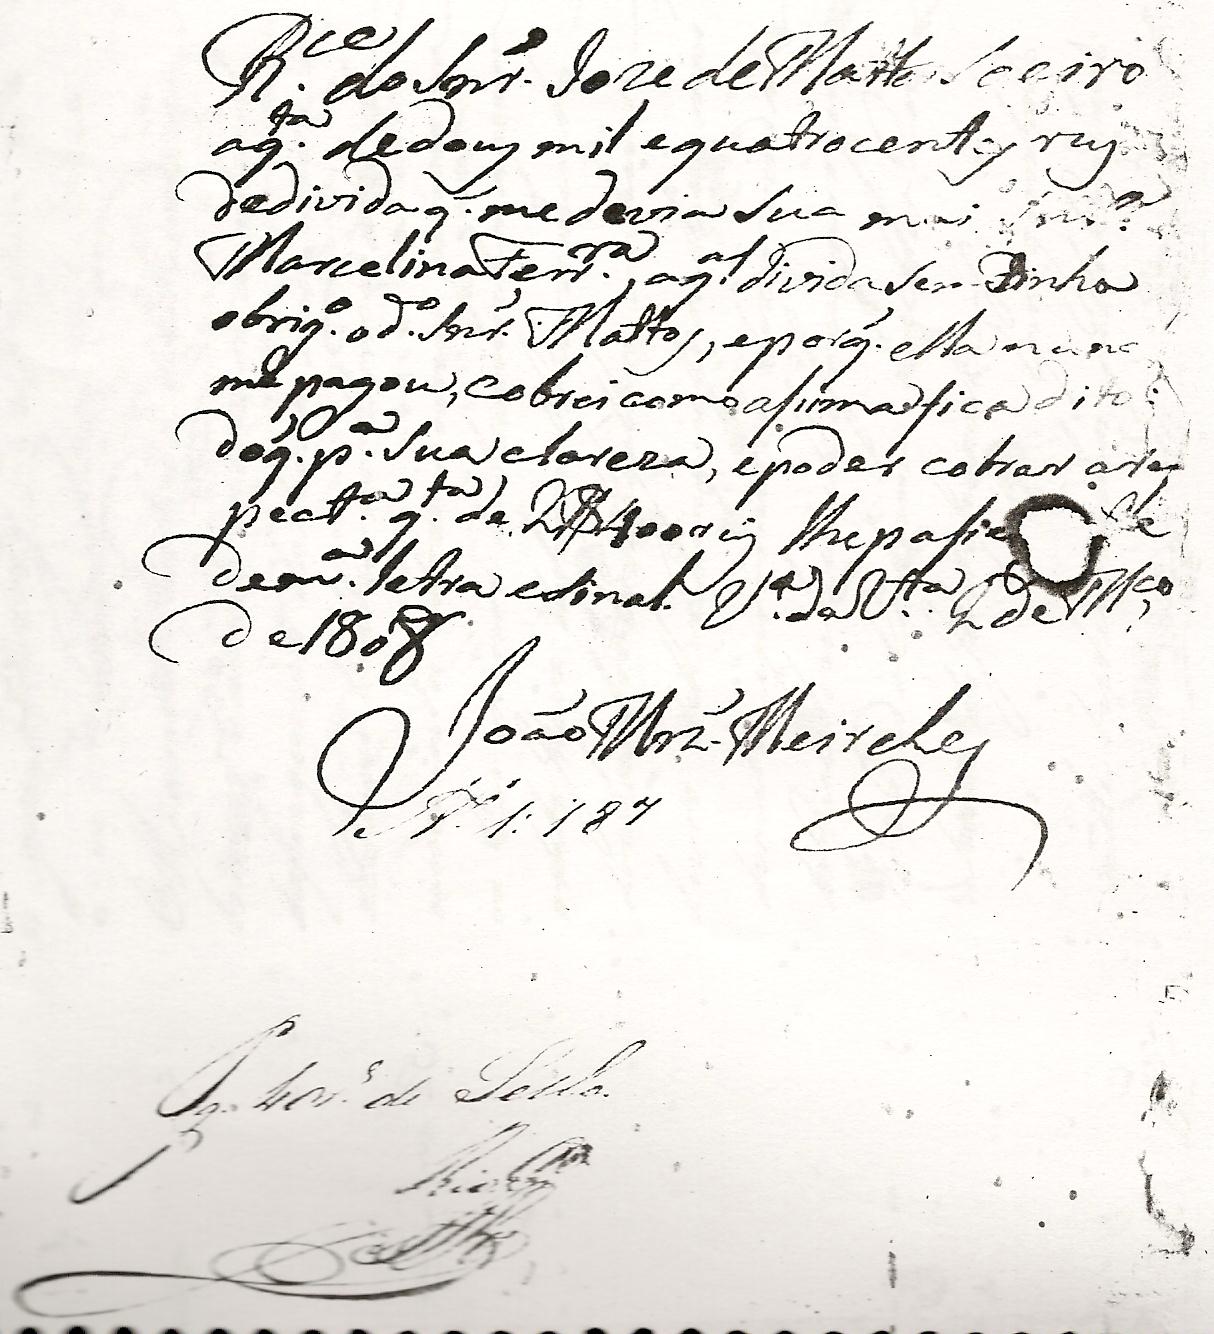 R.ce do Snr. Joze de Mattos Soeiro
a q.ta de douz mil e quatrocentoz reiz
de divida q. me devia sua mai Snr.a
Marcelina Ferr.ra, a q.al divida se
obrig.o o d.o Snr. Mattos, e porq. ella nunc
me pagou, cobrei como asima fica dito
do q. p.a sua clareza, e poder cobrar a rez
pect.a q.ta de 2$400 reiz lhe pasei
de m.a letra e sinal. V.a da V.ta 2 de M.co
de 1808
João Mrz. Meireles
N. 1. 187
Pg. 40 r.s de Sello.